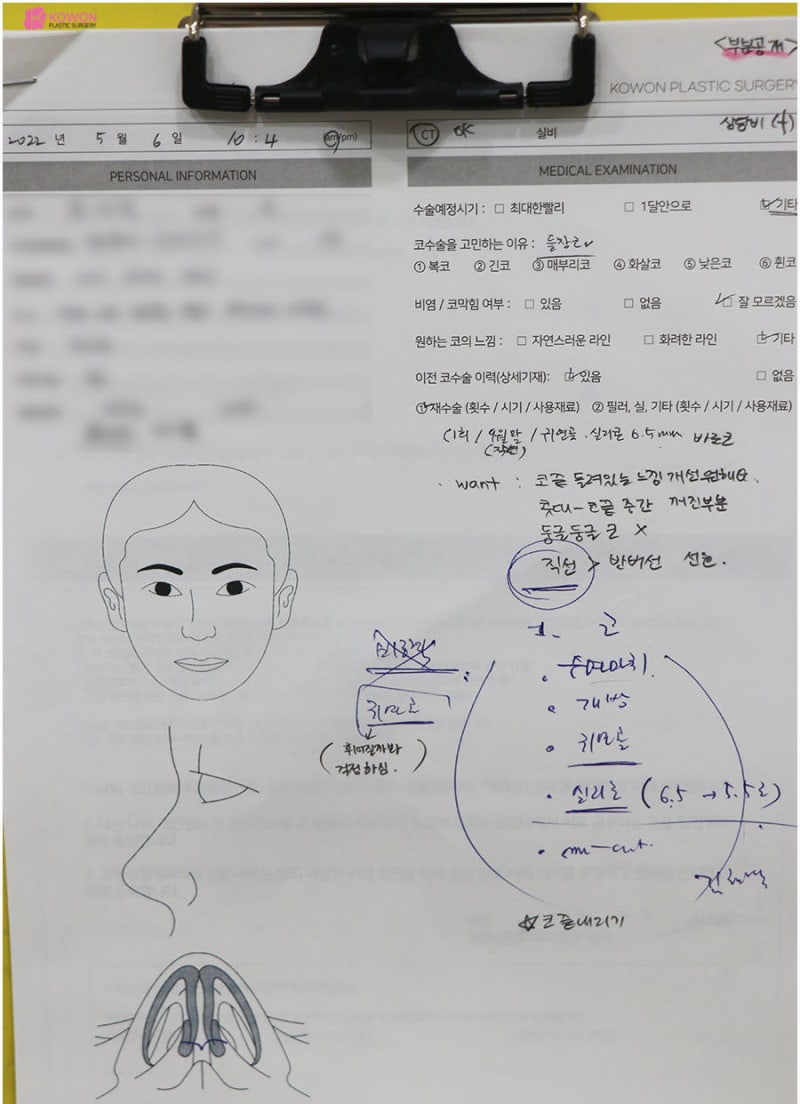 KOWON
PLASTIC SURGERY
<부분공개>
KOWON PLASTIC SURGERY
상담비 (+)
2022 년 5 월 6 일 10 : 4 (am/pm)
CT OK 실비
PERSONAL INFORMATION
MEDICAL EXAMINATION
수술예정시기 : □ 최대한빨리 □ 1달안으로 □ 기타
코수술을 고민하는 이유 : 들창코
① 복코 ② 긴코 ③ 매부리코 ④ 화살코 ⑤ 낮은코 ⑥ 휜코
비염 / 코막힘 여부 : □ 있음 □ 없음 □ 잘 모르겠음
원하는 코의 느낌 : □ 자연스러운 라인 □ 화려한 라인 □ 기타
이전 코수술 이력(상세기재): □ 있음 □ 없음
① 재수술 (횟수 / 시기 / 사용재료) ② 필러, 실, 기타 (횟수 / 시기 / 사용재료)
(1회 / 9월말 / 귀연골, 실리콘 6.5mm 바르코
(작년)
· want : 코끝 들려있는 느낌 개선원해요.
콧대-코끝 중간 꺼진부분
둥글둥글 코 X
직선 > 반버선 선호.
코
비중격
· 수면마취
귀연골
· 개방
· 귀연골
(휘어질까봐
걱정하심.)
· 실리콘 (6.5 → 5.5로)
☆ 코끝내리기